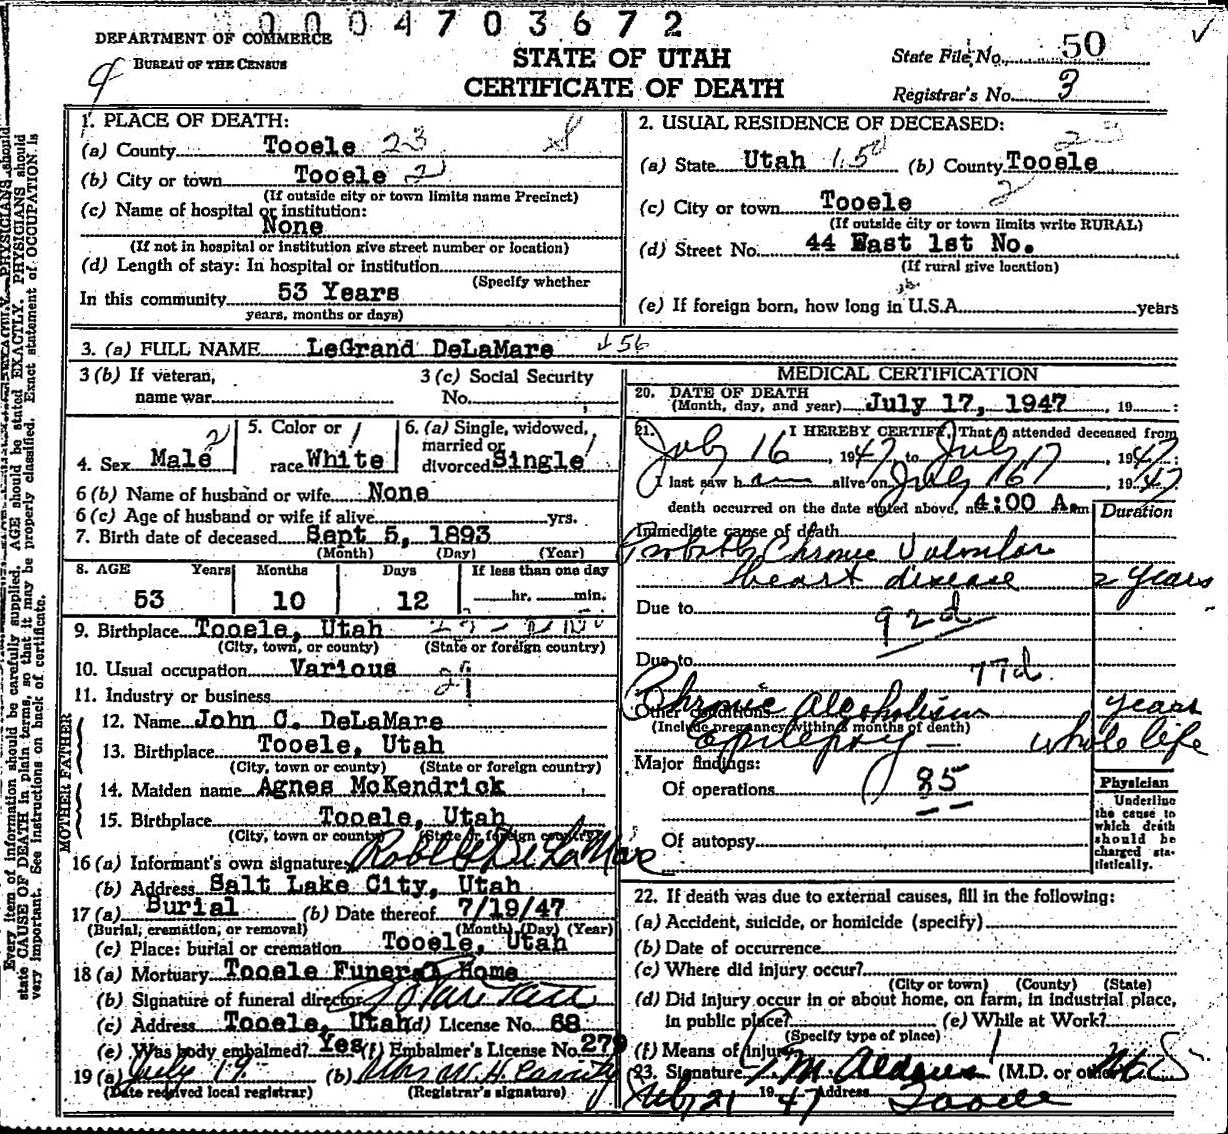 0004703672
DEPARTMENT OF COMMERCE
BUREAU OF THE CENSUS
STATE OF UTAH
CERTIFICATE OF DEATH
State File No. 50
Registrar's No. 3
1. PLACE OF DEATH:
(a) County Tooele 23
(b) City or town Tooele 2
(If outside city or town limits name Precinct)
(c) Name of hospital or institution:
None
(If not in hospital or institution give street number or location)
(d) Length of stay: In hospital or institution
(Specify whether
In this community 53 Years
years, months or days)
2. USUAL RESIDENCE OF DECEASED:
23
(a) State Utah 150 (b) County Tooele
2
(c) City or town Tooele
(If outside city or town limits write RURAL)
(d) Street No. 44 East 1st No.
(If rural give location)
(e) If foreign born, how long in U.S.A. years
3. (a) FULL NAME LeGrand DeLaMare 56
3 (b) If veteran,
name war
3 (c) Social Security
No.
4. Sex Male 2
5. Color or
race White 1
6. (a) Single, widowed,
married or
divorced Single 1
6 (b) Name of husband or wife None
6 (c) Age of husband or wife if alive yrs.
7. Birth date of deceased Sept 5, 1893
(Month) (Day) (Year)
8. AGE Years Months Days If less than one day
53 10 12 hr. min.
9. Birthplace Tooele, Utah
(City, town, or county) (State or foreign country)
10. Usual occupation Various
11. Industry or business
FATHER
12. Name John C. DeLaMare
13. Birthplace Tooele, Utah
(City, town or county) (State or foreign country)
MOTHER
14. Maiden name Agnes McKendrick
15. Birthplace Tooele, Utah
(City, town or county) (State or foreign country)
16 (a) Informant's own signature DeLaMare
(b) Address Salt Lake City, Utah
17 (a) Burial (b) Date thereof 7/19/47
(Burial, cremation, or removal) (Month) (Day) (Year)
(c) Place: burial or cremation Tooele, Utah
18 (a) Mortuary Tooele Funeral Home
(b) Signature of funeral director
(c) Address Tooele, Utah (d) License No. 68
(e) Was body embalmed? Yes (f) Embalmer's License No. 279
19 (a) July 19 (b) Mrs W. H. Cassity
(Date received local registrar) (Registrar's signature)
MEDICAL CERTIFICATION
20. DATE OF DEATH
(Month, day, and year) July 17, 1947, 19
21. I HEREBY CERTIFY, That I attended deceased from
July 16, 1947, to July 17, 1947
I last saw him alive on July 16, 1947
death occurred on the date stated above, at 4:00 A. m
Duration
Immediate cause of death
Probably Chronic Valvular
heart disease 2 years
Due to 92d
Due to 77d
Chronic Alcoholism years
Other conditions
(Include pregnancy within 3 months of death)
epilepsy whole life
Major findings:
Of operations 85
Of autopsy
Physician
Underline
the cause to
which death
should be
charged sta-
tistically.
22. If death was due to external causes, fill in the following:
(a) Accident, suicide, or homicide (specify)
(b) Date of occurrence
(c) Where did injury occur?
(City or town) (County) (State)
(d) Did injury occur in or about home, on farm, in industrial place,
in public place? (e) While at Work?
(Specify type of place)
(f) Means of injury
23. Signature M. Aldous (M.D. or other) M.D.
July 21 1947 Address Tooele
Every item of information should be carefully supplied. AGE should be stated EXACTLY. PHYSICIANS should
state CAUSE OF DEATH in plain terms, so that it may be properly classified. Exact statement of OCCUPATION is
very important. See instructions on back of certificate.